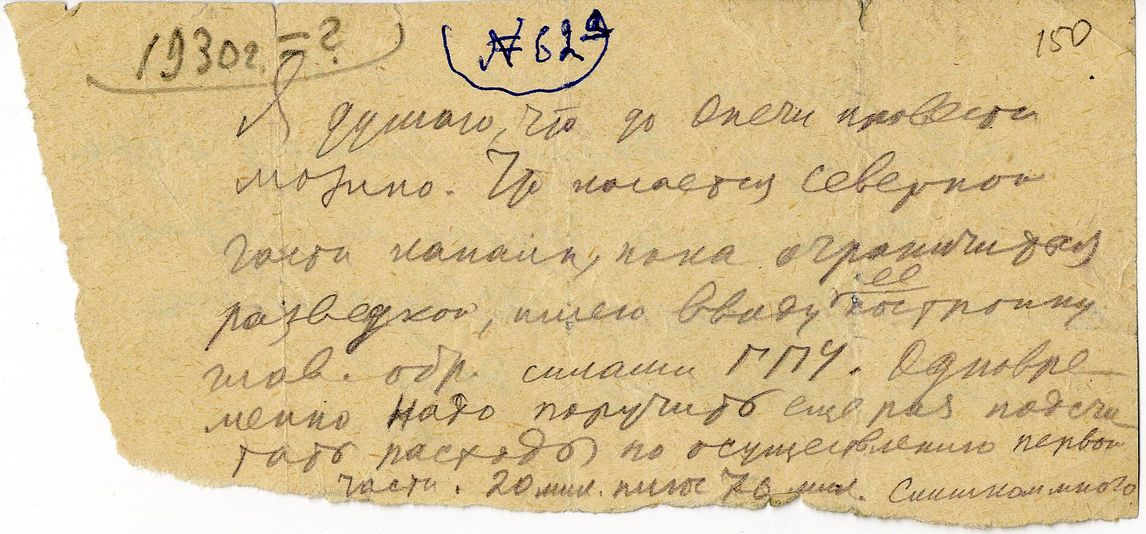 1930г. = ?
№ 62а
150
Я думаю, что до Онеги провести
можно. Что касается северной
части канала, пока ограничиться
разведкой, имею ввиду ее постройку
глав. обр. силами ГПУ. Одновре-
менно надо поручить еще раз подсчи
тать расходы по осуществлению первой
части. 20 мил. плюс 70 мил. Слишком много